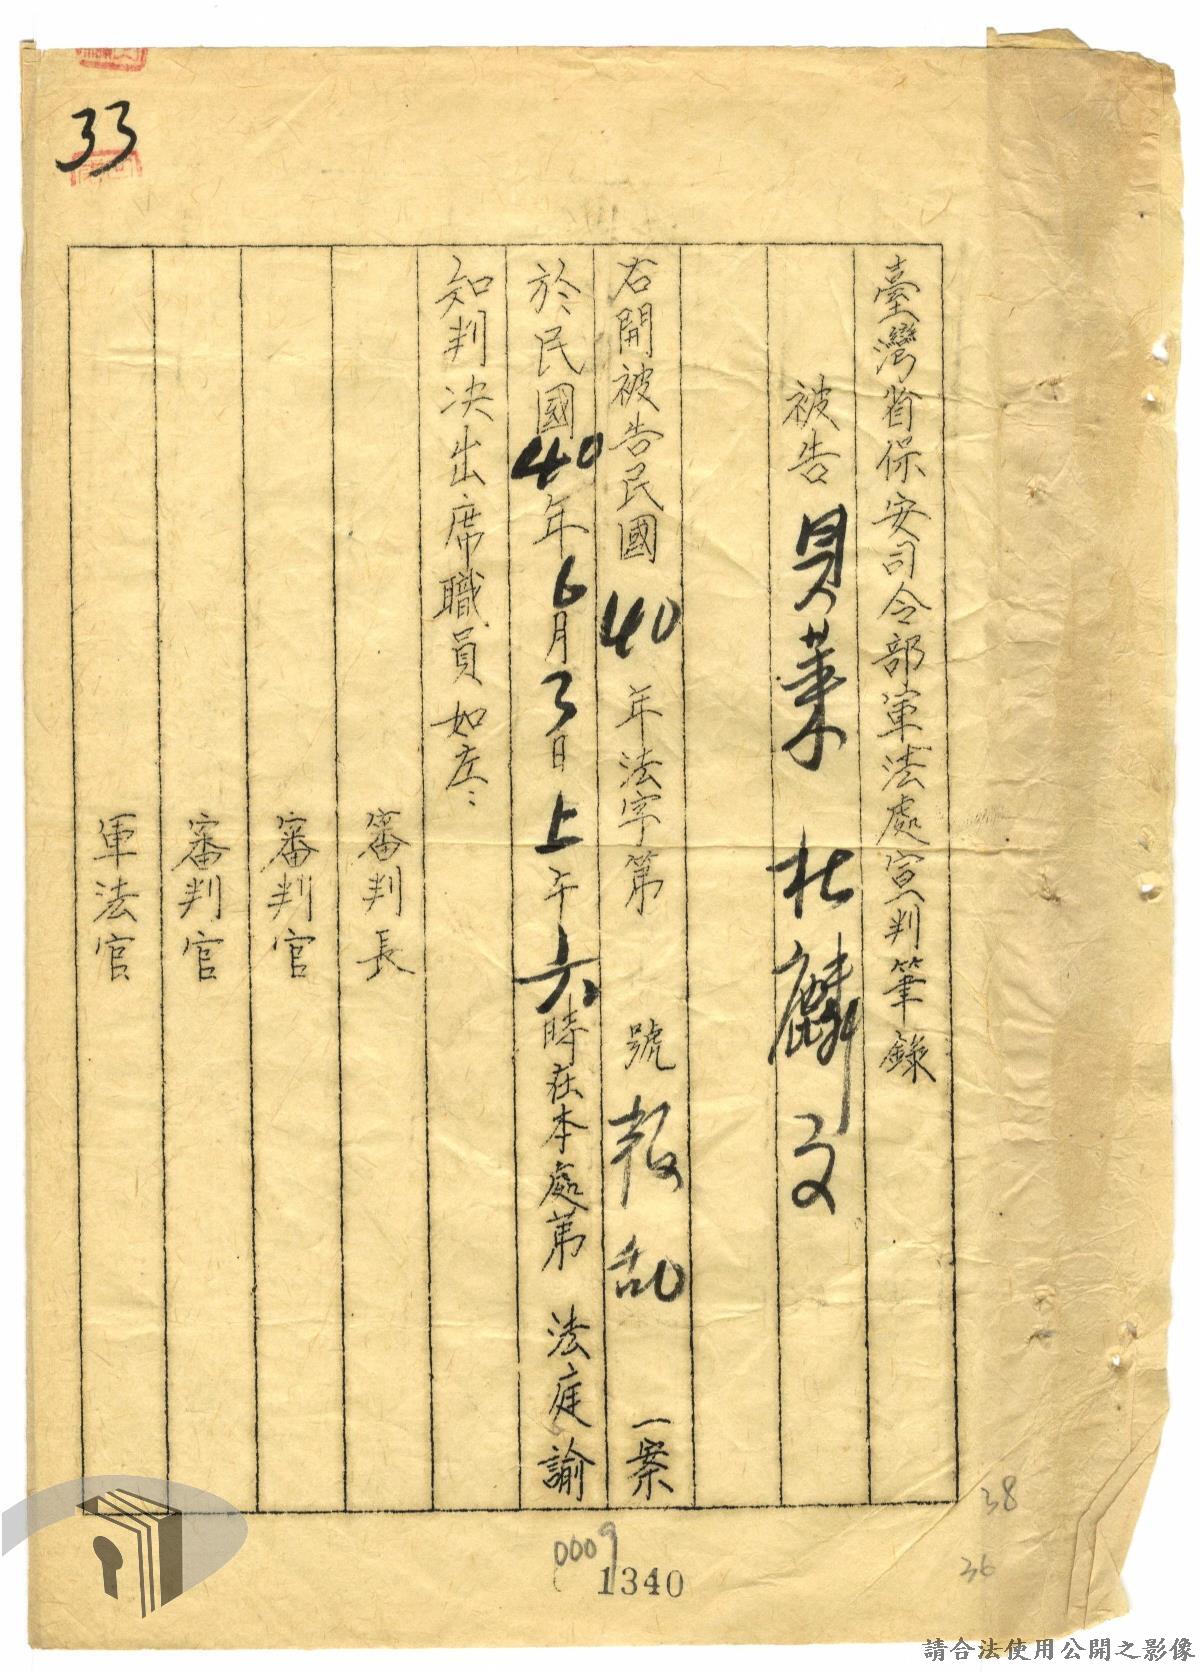 33
臺灣省保安司令部軍法處宣判筆錄
被告 吳葉 杜麟文
右開被告民國40年法字第 號叛乱 一案
於民國40年6月3日上午六時在本處第 法庭諭
知判决出席職員如左:
審判長
審判官
審判官
軍法官
38
36
0009
1340
請合法使用公開之影像